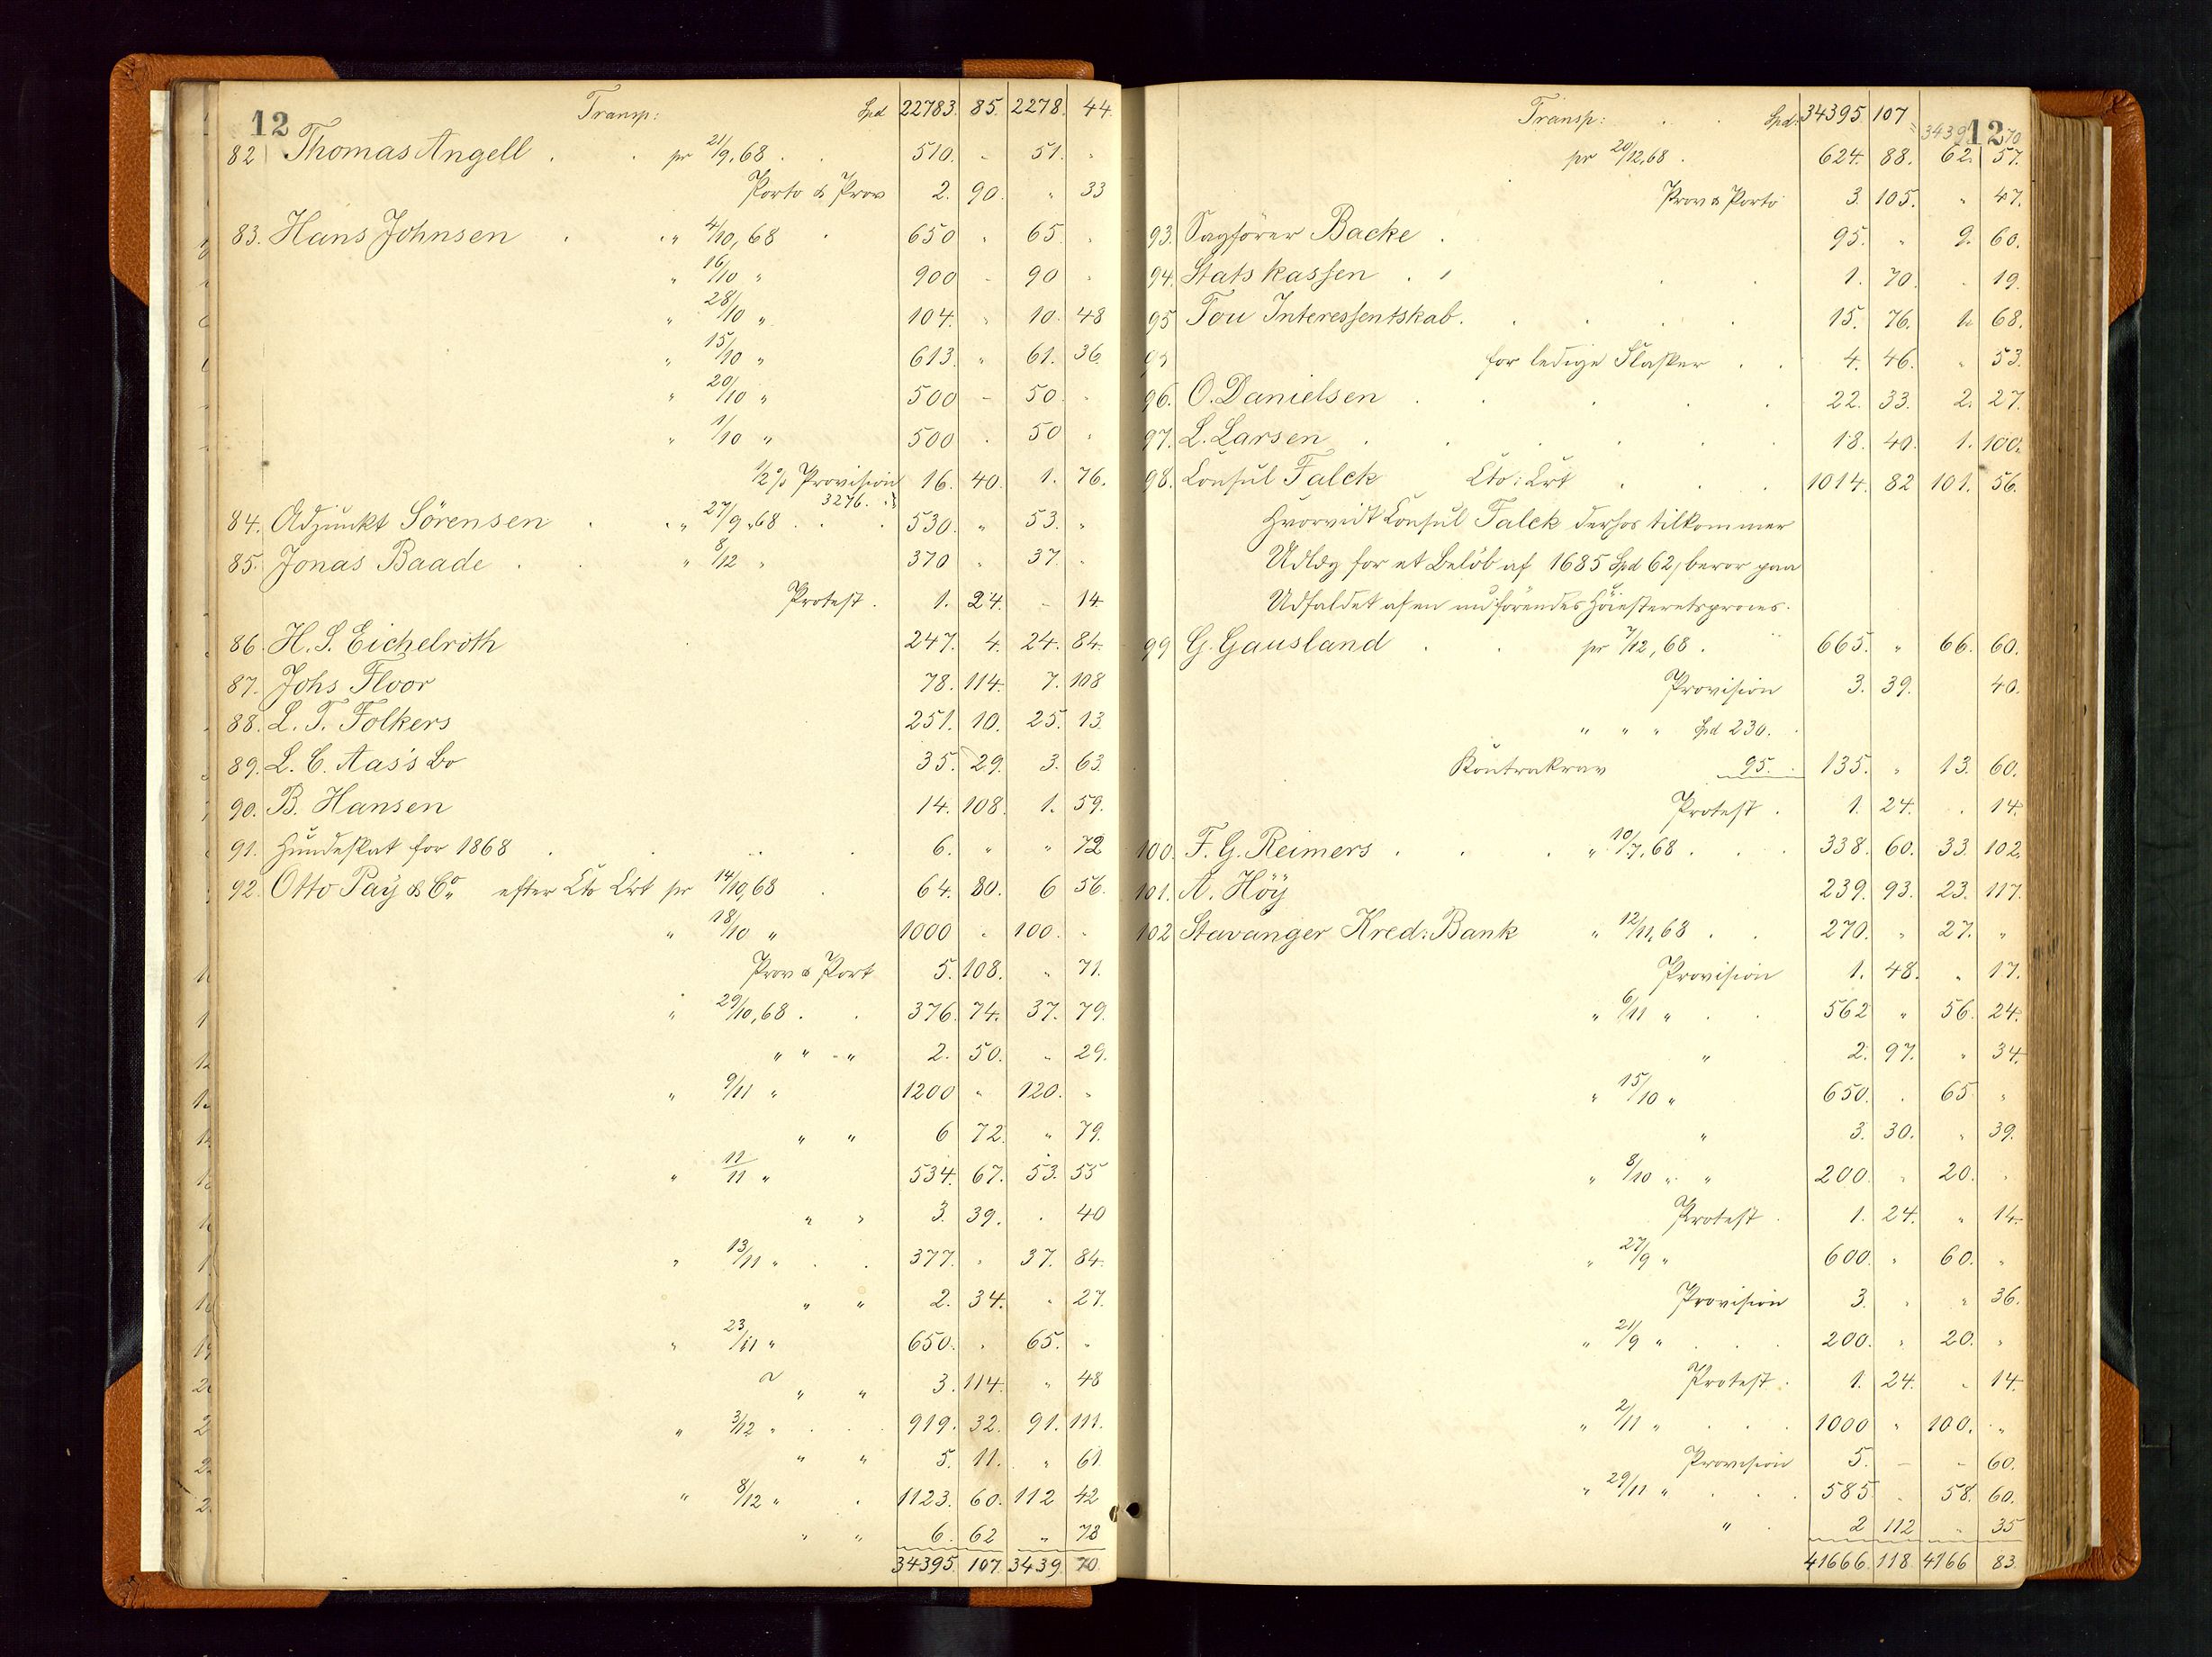 12
Transp: Spd 22783. 85. 2278. 44.
82 Thomas Angell . . pr 21/9, 68 . . 510. " 51. "
Porto & Prov 2. 90. " 33
83. Hans Johnsen . . " 4/10, 68 . 650 " 65. "
" 16/10 " 900 - 90 "
" 28/10 " 104. " 10. 48
" 15/10 " 613. " 61. 36
" 20/10 " 500 - 50. "
" 1/10 " 500 . 50 "
1/2 % Provision 16. 40. 1. 76.
3276.
84. Adjunkt Sörensen . . " 27/9 68 . . 530. " 53. "
85. Jonas Baade . . " 8/12 " 370 " 37. "
Protest . 1. 24. - 14
86. H. S. Eichelroth 247. 4. 24. 84.
87. Johs Floor 78. 114. 7. 108
88. L. T. Folkers 251. 10. 25. 13.
89. L. C. Aas's Bo 35. 29. 3. 63.
90. B. Hansen 14. 108. 1. 59.
91. Hundeskat for 1868 . . . . 6. " " 72
92. Otto Pay & Co. efter Cto Crt pr 14/10, 68 . 64. 80. 6 56.
" 18/10 " 1000 " 100. "
Prov & Port 5. 108. " 71.
" 29/10, 68 . . 376. 74. 37. 79.
" " - " 2. 50. " 29.
" 9/11 " 1200 " 120. "
" " 6 72. " 79.
" 11/11 " 534. 67. 53. 55
" " 3. 39. . 40
" 13/11 " . . 377. " 37. 84.
" " 2. 34. " 27.
" 23/11 " 650. " 65. "
" " 3. 114. " 48
" 3/12 " . . . 919. 32. 91. 111.
" " 5. 11. " 61
" 8/12 " . 1123. 60. 112 42
" " 6. 62 " 78
34395. 107. 3439. 70.
12
Transp: . . Spd: 34395. 107 3439 70
pr 20/12, 68 . 624. 88. 62. 57.
Prov & Porto 3. 105. " 47.
93. Sagförer Backe . 95. " 9. 60.
94. Statskassen . . . . 1. 70. . 19.
95 Tou Interessentskab . . . . . 15. 76. 1. 68.
for ledige Flasker . . 4. 46. " 53.
96. O. Danielsen . . . . . 22. 33. 2. 27.
97. L. Larsen . . . . . 18. 40. 1. 100.
98. Consul Falck Cto: Crt . . . 1014. 82 101. 56.
Hvorvidt Consul Falck derhos tilkommer
Udlæg for et Belöb af 1685 Spd 62, beror paa
Udfaldet af en indförendes Höiesteretsproces.
99 G. Gausland . . pr 7/12, 68 . 665. " 66. 60.
Provision 3. 39. 40.
" " " Spd 230. .
Kontrakrav 95. . 135. " 13. 60.
Protest . 1. 24. . 14.
100. F. G. Reimers . . . " 10/7, 68 . . . 338. 60. 33. 102.
101. A. Höÿ 239. 93. 23. 117.
102 Stavanger Kred: Bank " 12/11, 68 . . 270. " 27. "
Provision 1. 48. " 17.
" 6/11 " . . 562 " 56. 24.
" 2. 97. " 34.
" 15/10 " 650. . 65 "
" 3. 30. " 39.
" 8/10 " " 200. " 20. "
Protest . 1. 24. " 14.
" 27/9 " 600. " 60. "
Provision 3. " " 36.
" 21/9 " . . . 200. " 20. "
Protest . 1. 24. " 14.
" 2/11 " . . . 1000 " 100. "
Provision 5. - - 60.
" 29/11 " . . . 585 . 58. 60.
" . 2 112 " 35
41666. 118. 4166 83.